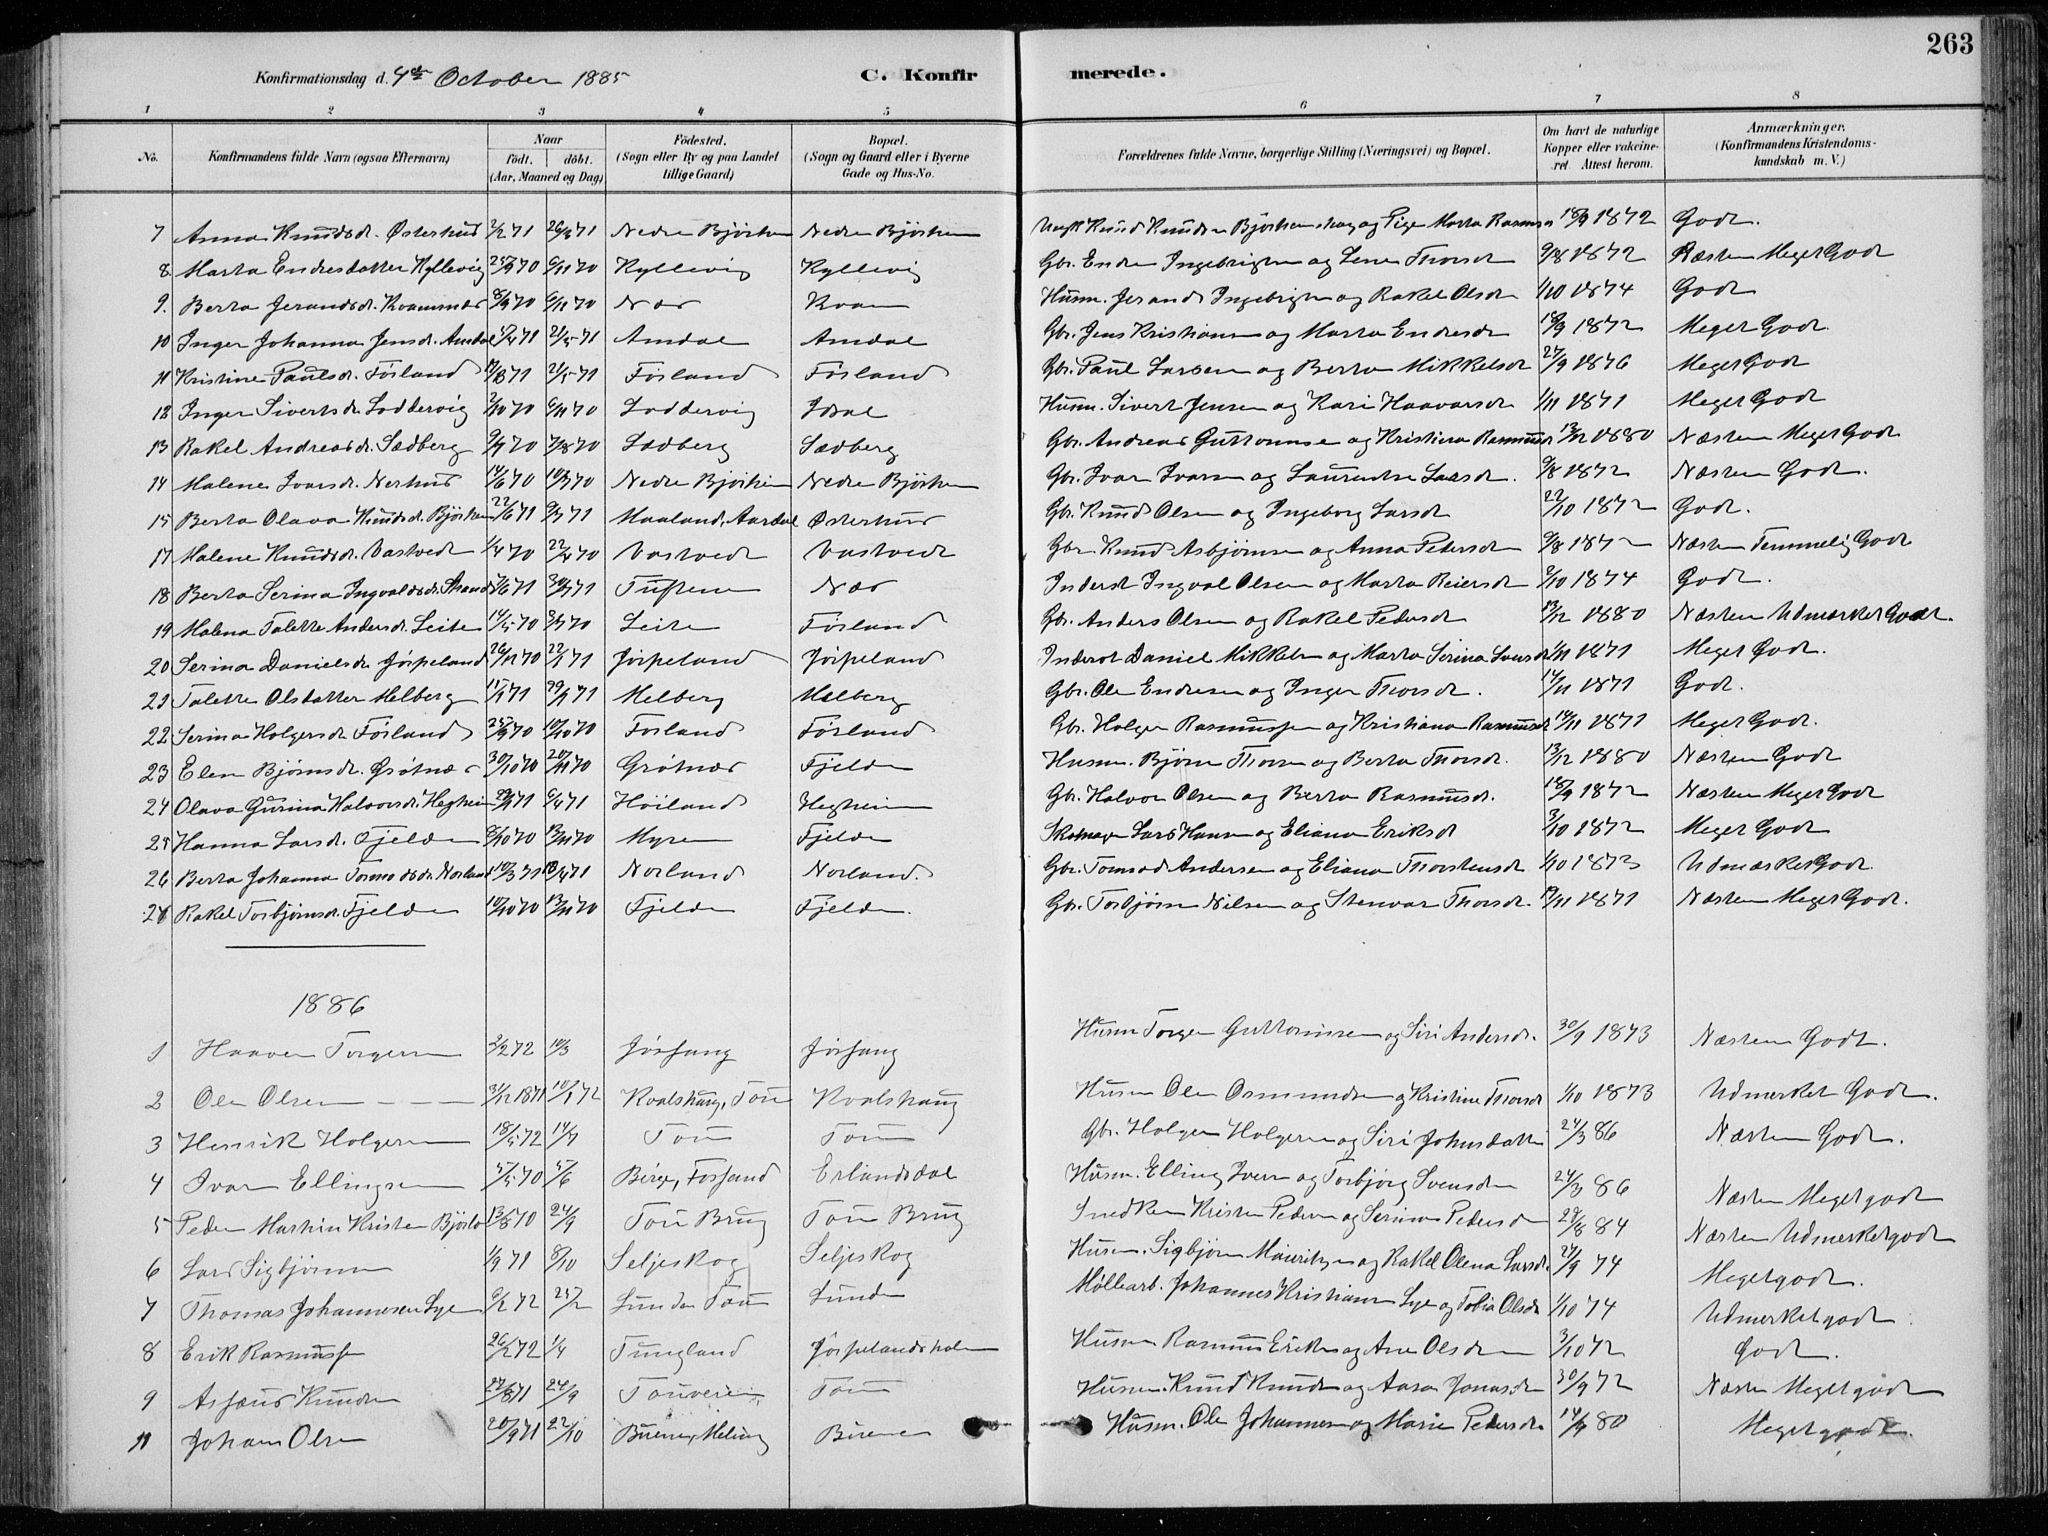 263
Konfirmationsdag d. 4de October 1885 C. Konfirmerede.
1 2 3 4 5 6 7 8
No. Konfirmandens fulde Navn (ogsaa Efternavn) Naar födt. döbt. (Aar, Maaned og Dag) Födested. (Sogn eller By og paa Landet tillige Gaard) Bopæl. (Sogn og Gaard eller i Byerne Gade og Hus-No. Forældrenes fulde Navne, borgerlige Stilling (Næringsvei) og Bopæl. Om havt de naturlige Kopper eller vakcineret Attest herom. Anmærkninger. (Konfirmandens Kristendomskundskab m. V.)
7 Anna Knudsdr. Østerhus 2/2 71 26/3 71 Nedre Björheim Nedre Björheim Knud Knudsen og Pige Marta Rasmusd 18/9 1872 Godt.
8 Marta Endresdatter Kyllevig 25/9 70 6/11 70 Kyllevig Kyllevig Gbr. Endre Ingebrigtsen og Lena Thorsdr 9/8 1872 Næsten Meget Godt
9. Berta Jerandsdr. Kvamsnæs 8/9 70 6/11 70 Nær Kvam Husm. Jerand Ingebrigtsn og Rakel Olsdr 1/10 1874 Godt
10 Inger Johanna Jensdr. Amdal 5/4 71 21/5 71 Amdal Amdal Gbr. Jens Kristiansen og Marta Endresdr 18/9 1872 Meget Godt.
11 Kristine Paulsdr. Försland 21/5 71 Försland Försland Gbr. Paul Larsen og Berta Mikkelsdr 27/9 1876 Meget Godt
12 Inger Sivertsdr. Loddervig 2/10 70 6/11 70 Loddervig Idsal Husm. Sivert Jensen og Kari Haavarsdr 1/11 1871 Meget Godt
13 Rakel Andreasdr. Sædberg 9/7 70 7/8 70 Sædberg Sædberg Gbr. Andreas Guttormsen og Kristina Rasmusdr 13/12 1880 Næsten Meget Godt
14 Malene Ivarsdr. Nerhus 14/6 70 10/7 70 Nedre Björheim Nedre Björheim Gbr. Ivar Ivarsen og Laurentse Larsdr. 9/8 1872 Næsten Godt.
15 Berta Olava Knudsdr. Björheim 22/6 71 9/7 71 Maaland, Aardal Østerhus Gbr. Knud Olsen og Ingeborg Larsdr 22/10 1872 Godt.
17 Malene Knudsdr. Vastvedt 1/4 70 22/4 70 Vastvedt Vastvedt Gbr. Knud Asbjörnsen og Anna Petersdr 9/8 1872 Næsten Temmelig Godt
18 Berta Serina Ingvaldsdr. Strand 7/6 71 30/7 71 Tuften Nær Inderst Ingval Olsen og Marta Reiersdr 2/10 1874 Godt.
19 Malena Talette Andersdr. Leite 14/5 70 3/7 70 Leite Försland Gbr. Anders Olsen og Rakel Pedersdr 13/12 1880 Næsten Udmærket Godt.
20 Serina Danielsdr. Jörpeland 26/12 70 22/1 71 Jörpeland Jörpeland Inderst Daniel Mikkelsen og Marta Serina Larsdr 1/11 1871 Meget Godt.
21 Talette Olsdatter Melberg 15/1 71 29/1 71 Melberg Melberg Gbr. Ole Endresen og Inger Thorsdr. 14/11 1871 Godt.
22 Serina Holgersdr. Försland 25/9 70 10/10 70 Försland Försland Gbr. Holger Rasmussen og Kristiana Rasmusdr 14/11 1871 Meget Godt.
23 Elen Björnsdr. Grötnæs 30/10 70 20/11 70 Grötnæs Fjelde Husm. Björn Thorsen og Berta Thorsdr. 13/12 1880 Næsten Godt
24 Olava Gurina Halvorsdr. Hegheim 6/4 71 Höiland Hegheim Gbr. Halvor Olsen og Berta Rasmusdr. 18/9 1872 Næsten Meget Godt
25 Hanna Larsdr. Fjelde 8/10 70 13/11 70 Myren Fjelde Skomager Lars Hansen og Eliana Eriksdr 3/10 1872 Meget Godt
26 Berta Johanna Tormodsdr. Norland 10/3 71 Norland Norland. Gbr. Tormod Andersen og Eliana Thorstensdr 1/10 1873 Udmærket Godt
28 Rakel Torbjörnsdr. Fjelde 10/10 70 13/11 70 Fjelde Fjelde. Gbr. Torbjörn Nilsen og Stenvar Thorsdr. 14/11 1871 Næsten Meget Godt.
1886
1 Haaver Torgersen 3/2 72 10/3 Jössang Jössang Husm Torger Guttormsen og Siri Andersdr. 30/9 1873 Næsten Godt.
2 Ole Olsen 31/12 1871 10/1 72 Kvalshaug, Tou Kvalshaug Husm Ole Osmundsen og Kristine Thorsdr 1/10 1873 Udmerket Godt.
3 Henrik Holgersen 18/5 72 14/7 Tou Tou Gbr. Holger Holgersen og Siri Johnsdatter 24/3 86 Næsten Godt.
4 Ivar Ellingsen 5/5 70 5/6 Börge, Forsand Erlandsdal Husm. Elling Iversen og Torbjörg Svensdr 24/3 86 Næsten Meget godt
5 Peder Martin Kristen Björlo 13/8 70 24/9 Tou Brug Tou Brug Snedker Kristen Pedersen og Serina Pedersdr 28/8 84 Næsten Udmerket godt
6 Lars Sigbjörnsen 1/9 71 8/10 Seljeskog Seljeskog Husm. Sigbjörn Mauritzsen og Rakel Olena Larsdr. 24/9 74 Meget godt.
7 Thomas Johannesen Lye 9/2 72 25/2 Lunden Tou Lunde Möllearb. Johannes Kristiansen Lye og Tobia Olsdr 1/10 74 Udmerket godt.
8 Erik Rasmussen 26/2 72 1/4 Tungland Jörpelandsholm Husm Rasmus Eriksen og Ane Olsdr 3/10 72 Godt.
9 Asjæus Knudsen 22/8 71 24/9 Tou Husm. Knud Knudsen og Aasa Jonasdr 30/9 72 Næsten Meget godt
11 Johan Olsen 20/9 71 22/10 Buene, Meling Buene Husm. Ole Johannesen og Marie Pedersdr 14/9 80 Meget godt.